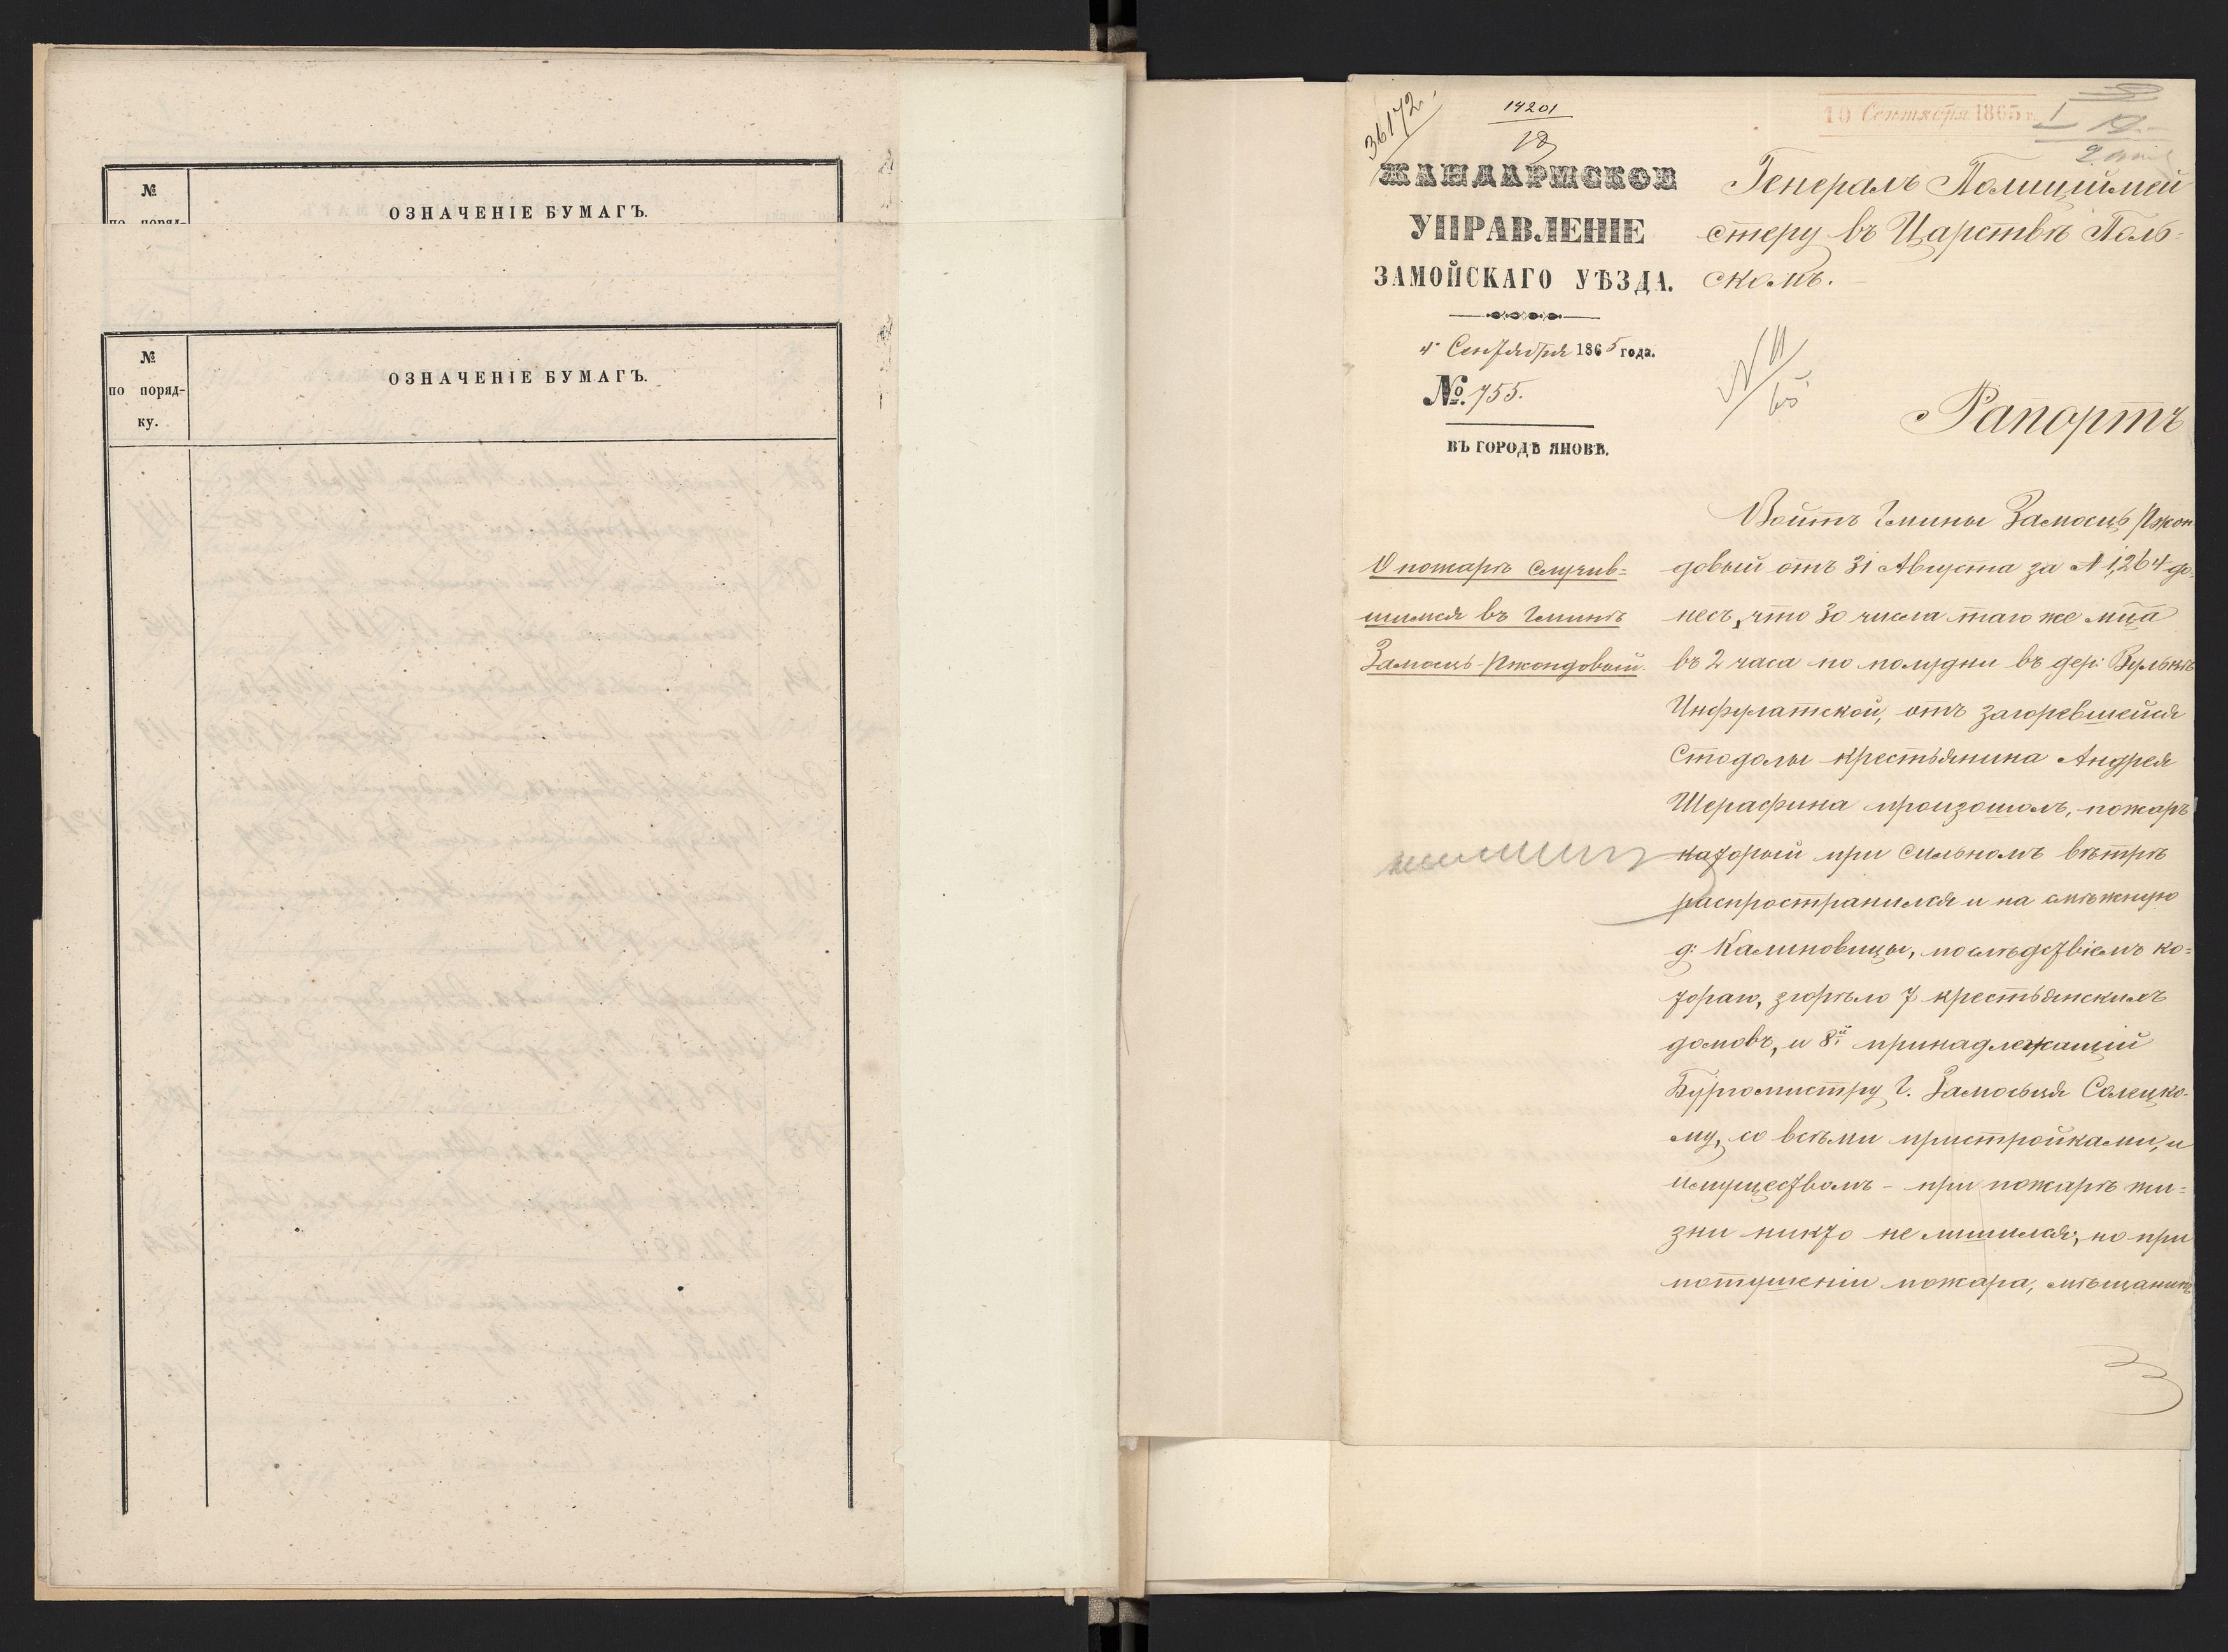 №
по поряд-
ОЗНАЧЕНІЕ БУМАГЪ.
№
по поряд-
ку.
ОЗНАЧЕНІЕ БУМАГЪ.
36172.
14201
10 Сентября 1865 г.
ЖАНДАРМСКОЕ
УПРАВЛЕНІЕ
ЗАМОЙСКАГО УѢЗДА.
4 Сентября 1865 года.
№. 755.
ВЪ ГОРОДѢ ЯНОВѢ.
Генералъ Полицiймей
стеру въ Царствѣ Поль-
скомъ.
Рапортъ
О пожарѣ случив-
шимся въ Гминѣ
Замосцъ-Ржондовый.
Войтъ Гмины Замосцъ Ржон
довый отъ 31 Августа за № 1,264 до-
несъ, что 30 числа того же мца
въ 2 часа по полудни въ дер: Вулькѣ
Инфулатской, отъ загоревшейся
Стодолы крестьянина Андрея
Шерафина произошолъ, пожаръ
который при сильномъ вѣтрѣ
распространился и на смѣжную
д: Калиновицы, послѣдствіемъ ко-
тораго, згорѣло 7 крестьянскихъ
домовъ, и 8й принадлежащій
Бургомистру Г. Замосьця Солецко-
му, со всѣми пристройками, и
имуществомъ - при пожарѣ жи-
зни никто не лишился, но при
потушеніи пожара, мѣщанинъ